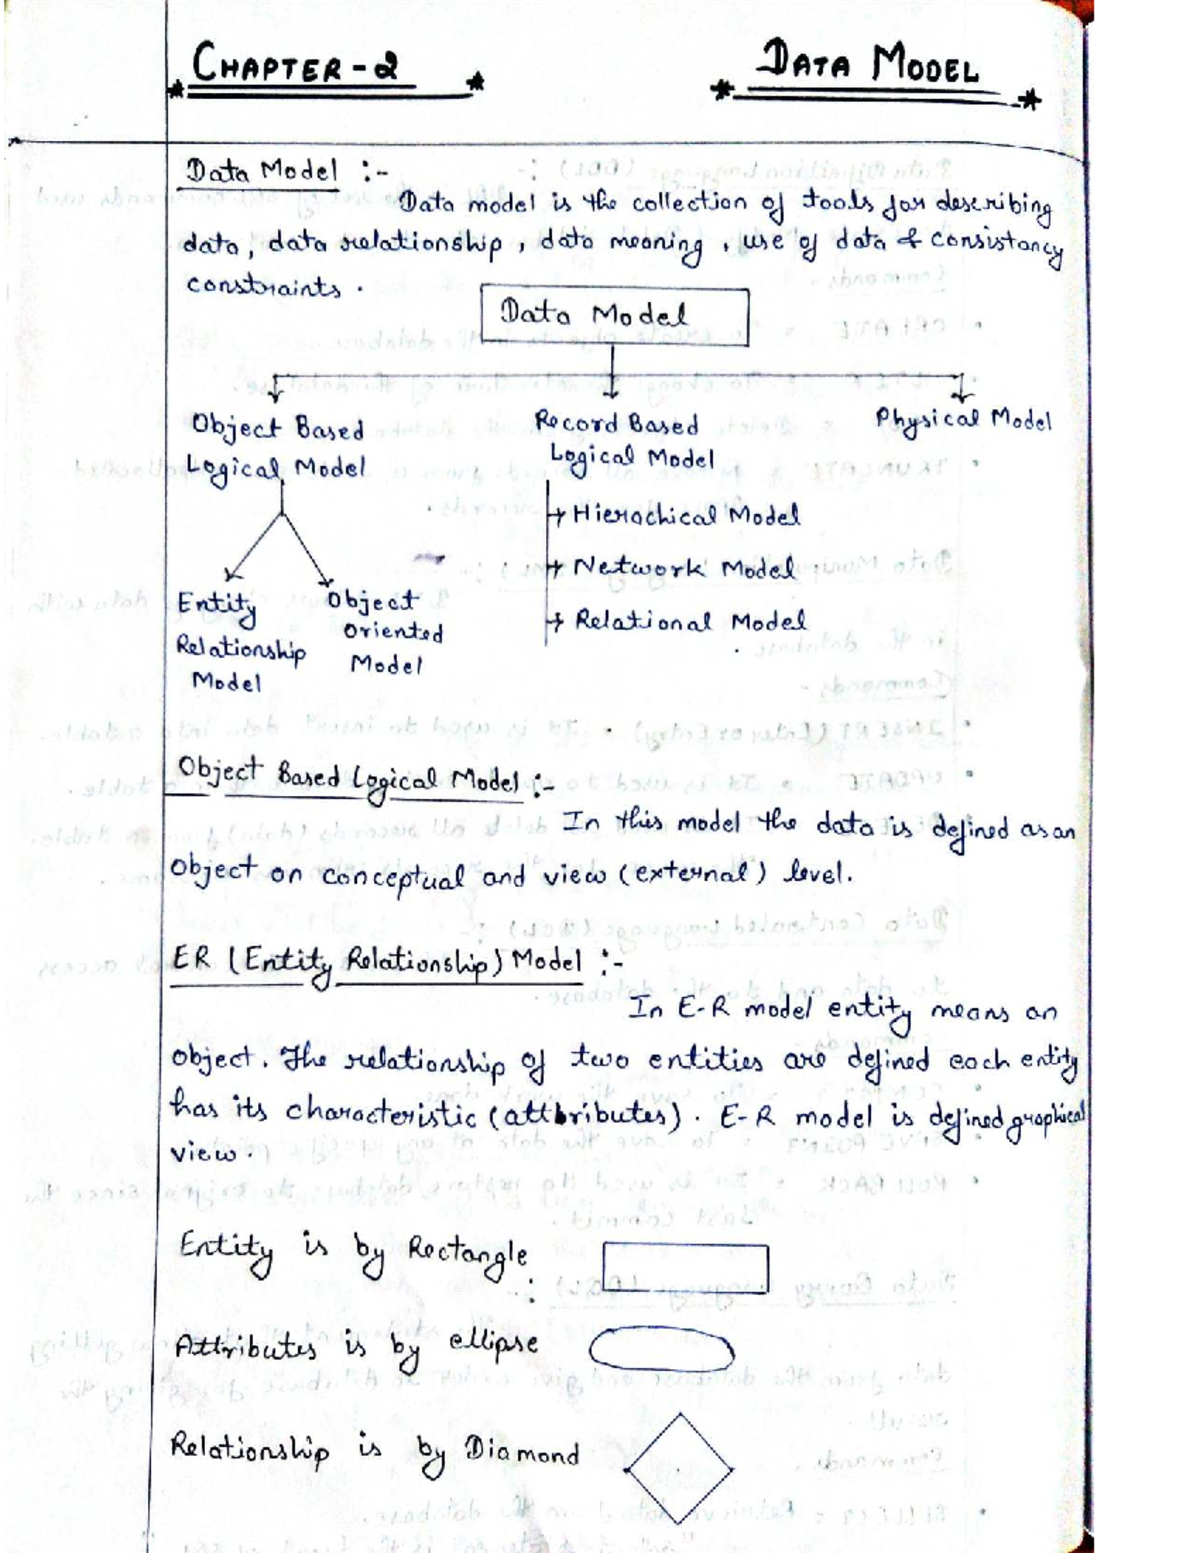 CHAPTER-2 DATA MODEL
Data Model :-
Data model is the collection of tools for describing
data, data relationship, data meaning, use of data & consistancy
constraints.
Data Model
Object Based Record Based Physical Model
Logical Model Logical Model
Hierachical Model
Network Model
Relational Model
Entity Object
Relationship oriented
Model Model
Object Based Logical Model :-
In this model the data is defined as an
object on conceptual and view (external) level.
ER (Entity Relationship) Model :-
In E-R model entity means an
object. The relationship of two entities are defined each entity
has its characteristic (attbributes). E-R model is defined graphical
view.
Entity is by Rectangle
Attributes is by ellipse
Relationship is by Diamond